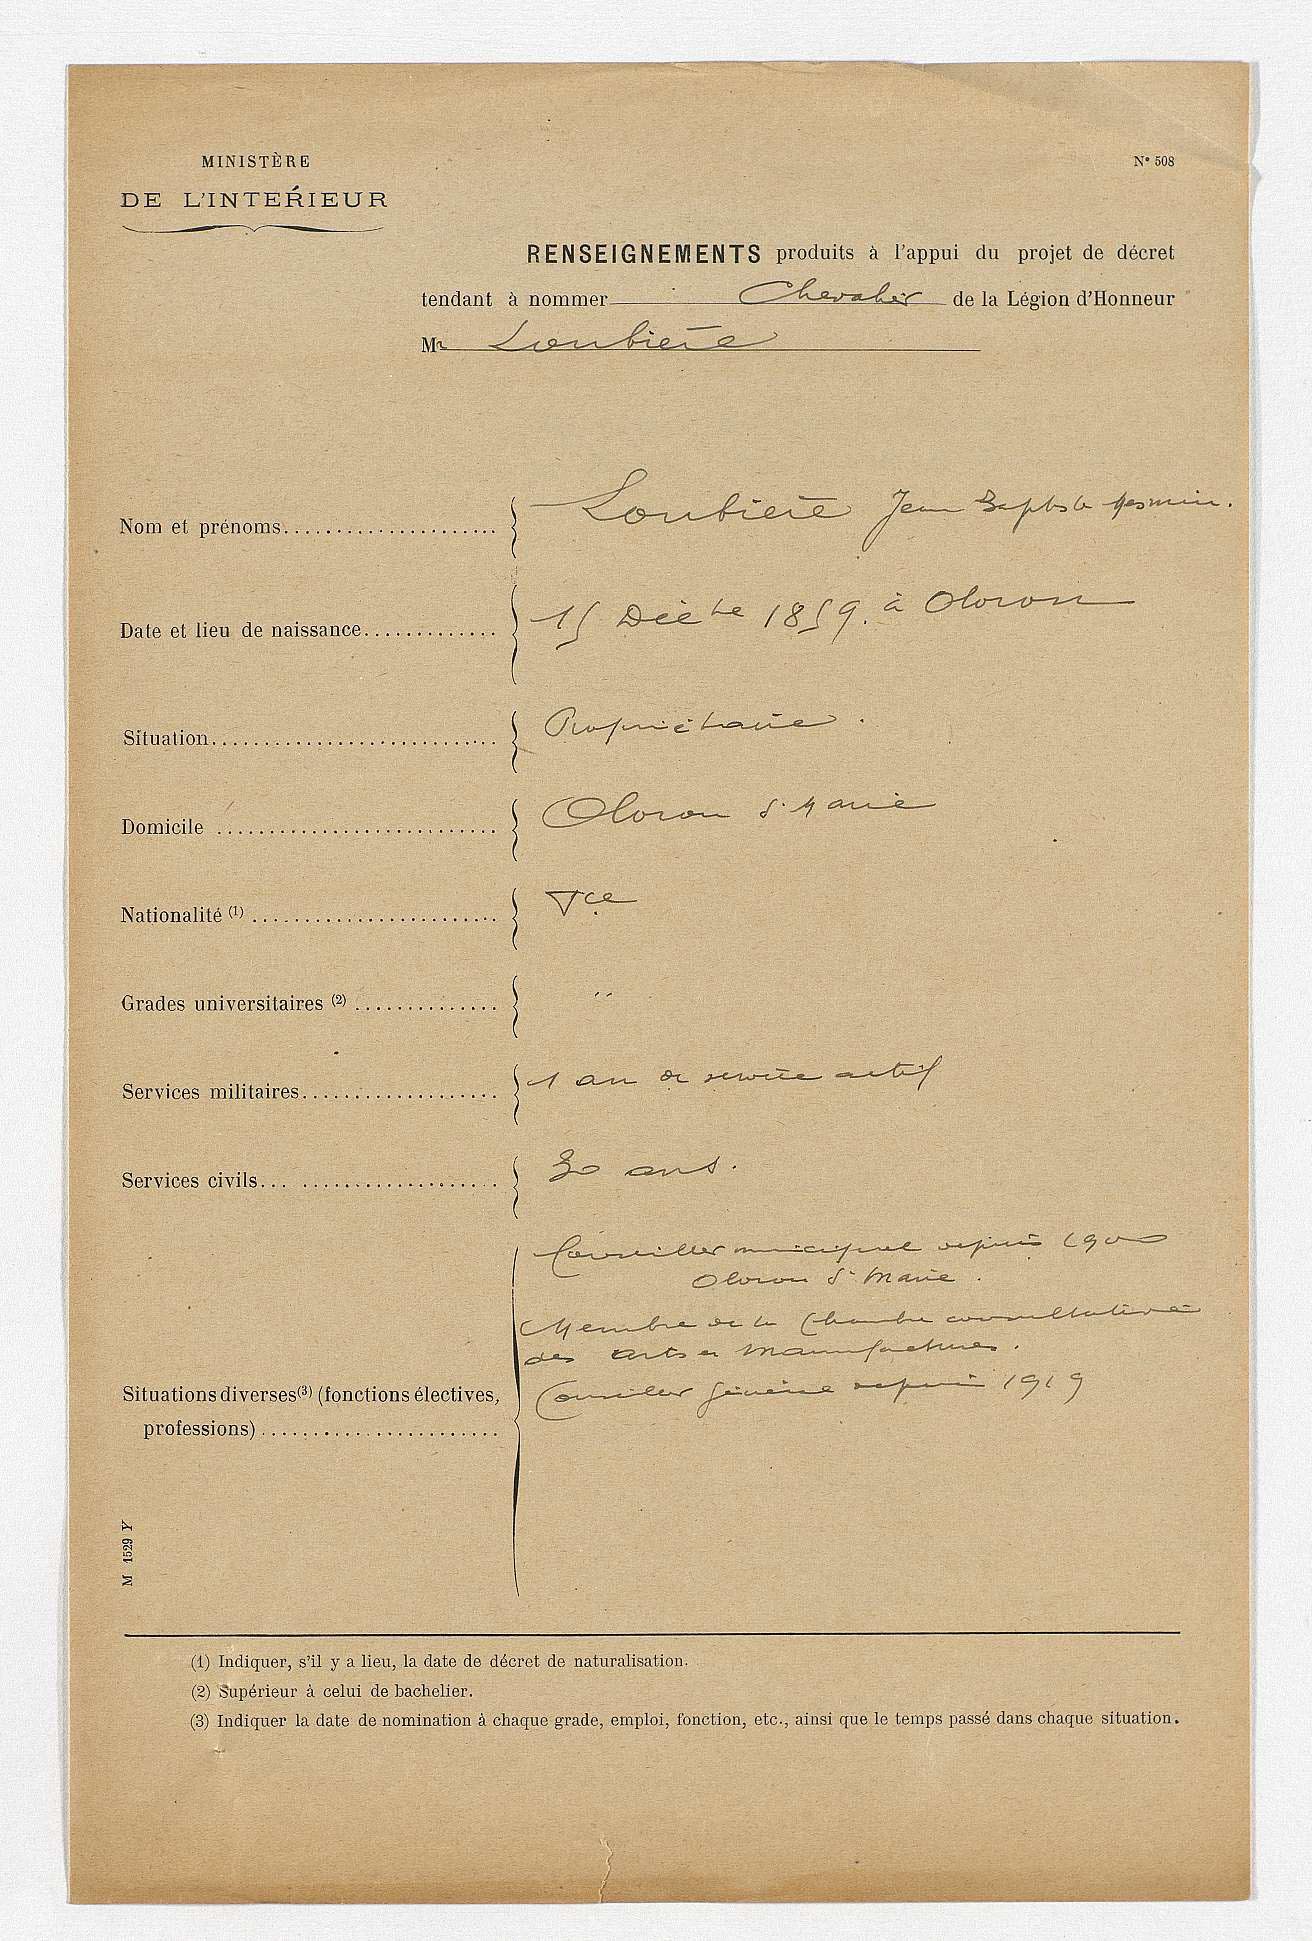 MINISTÈRE
DE L'INTÉRIEUR
N° 508
RENSEIGNEMENTS produits à l'appui du projet de décret
tendant à nommer Chevalier de la Légion d'Honneur
Mr Loubière
Nom et prénoms Loubière Jean Baptiste Mesmin.
Date et lieu de naissance 15 Déc bre 1859. à Oloron
Situation Propriétaire.
Domicile Oloron Ste Marie
Nationalité (1) Fce
Grades universitaires (2) "
Services militaires 1 an de service actif
Services civils 30 ans.
Conseiller municipal depuis 1900
Oloron Ste Marie.
Membre de la Chambre consultative
des arts et manufactures.
Situations diverses (3) (fonctions électives, Conseiller général depuis 1919
professions)
M 1529 Y
(1) Indiquer, s'il y a lieu, la date de décret de naturalisation.
(2) Supérieur à celui de bachelier.
(3) Indiquer la date de nomination à chaque grade, emploi, fonction, etc., ainsi que le temps passé dans chaque situation.